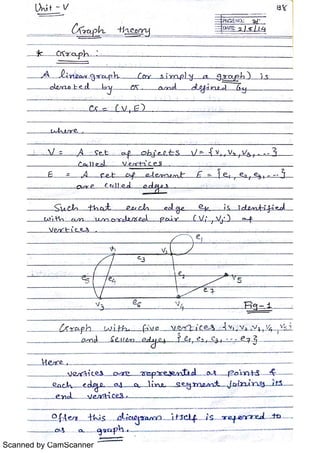 Unit - V
98
PAGE NO.
DATE: 2/5/14
Graph theory
* Graph :
A linear graph (or simply a graph) is
denoted by G. and defined by
G = (V, E)
where,
V = A set of objects V = { v1, v2, v3, ... }
called vertices
E = A set of element E = { e1, e2, e3, ... }
are called edges
Such that each edge ek is Identified
with an unordered pair (Vi, Vj) of
vertices.
e1
v1 v2
e3
e5 e4 e2 v5
e7
v3 e6 v4 Fig-1
Graph with five vertices { v1, v2, v3, v4, v5 }
and seven edges { e1, e2, e3, ... e7 }
Here,
vertices are represented as points &
each edge as a line segment joining its
end vertices.
Often this diagram itself is referred to
as a graph.
Scanned by CamScanner